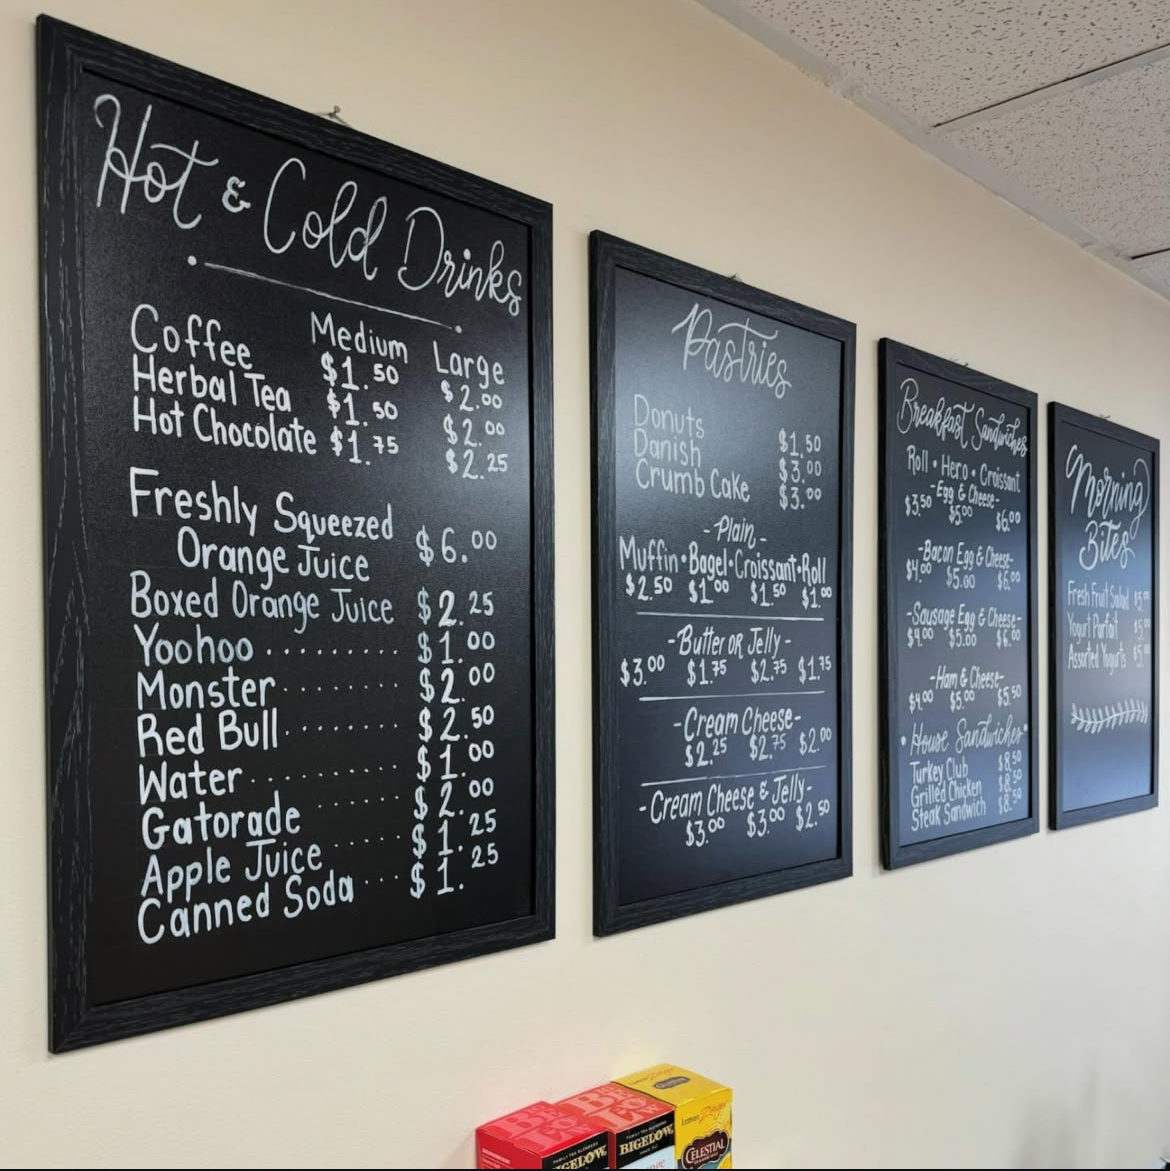 Hot & Cold Drinks
Medium Large
Coffee $1.50 $2.00
Herbal Tea $1.50 $2.00
Hot Chocolate $1.75 $2.25
Freshly Squeezed
Orange Juice $6.00
Boxed Orange Juice $2.25
Yoohoo ......... $1.00
Monster ........ $2.00
Red Bull ........ $2.50
Water .......... $1.00
Gatorade ...... $2.00
Apple Juice ..... $1.25
Canned Soda .... $1.25
Pastries
Donuts $1.50
Danish $3.00
Crumb Cake $3.00
-Plain-
Muffin • Bagel • Croissant • Roll
$2.50 $1.00 $1.50 $1.00
-Butter OR Jelly-
$3.00 $1.75 $2.75 $1.75
-Cream Cheese-
$2.25 $2.75 $2.00
-Cream Cheese & Jelly-
$3.00 $3.00 $2.50
Breakfast Sandwiches
Roll • Hero • Croissant
-Egg & Cheese-
$3.50 $5.00 $6.00
-Bacon Egg & Cheese-
$4.00 $5.00 $6.00
-Sausage Egg & Cheese-
$4.00 $5.00 $6.00
-Ham & Cheese-
$4.00 $5.00 $5.50
• House Sandwiches •
Turkey Club $8.50
Grilled Chicken $8.50
Steak Sandwich $8.50
Morning
Bites
Fresh Fruit Salad $5.00
Yogurt Parfait $5.00
Assorted Yogurts $5.00
BIGELOW
BIGELOW
Lemon Zinger
CELESTIAL